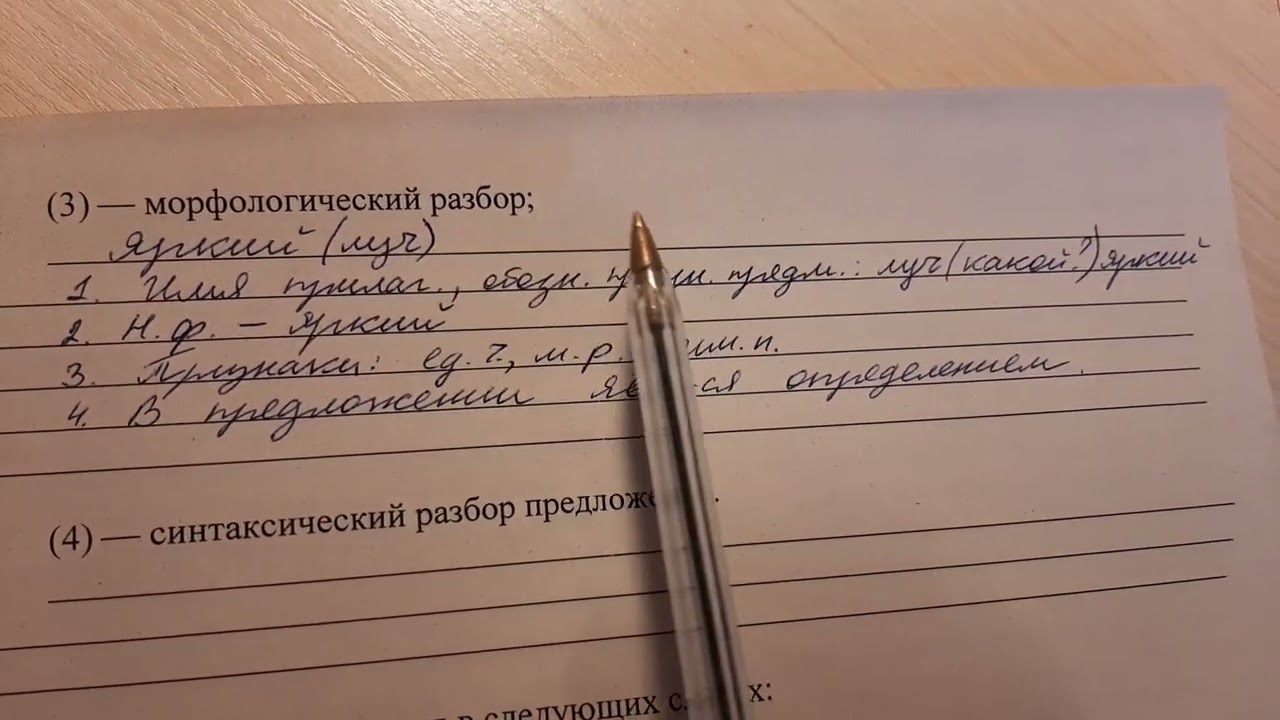 (3) — морфологический разбор;
Яркий (луч)
1. Имя прилаг., обозн. предм.: луч (какой?) яркий
2. Н.ф. – яркий
3. Признаки: ед. ч., м.р. им. п.
4. В предложении определением.
(4) — синтаксический разбор
в следующих